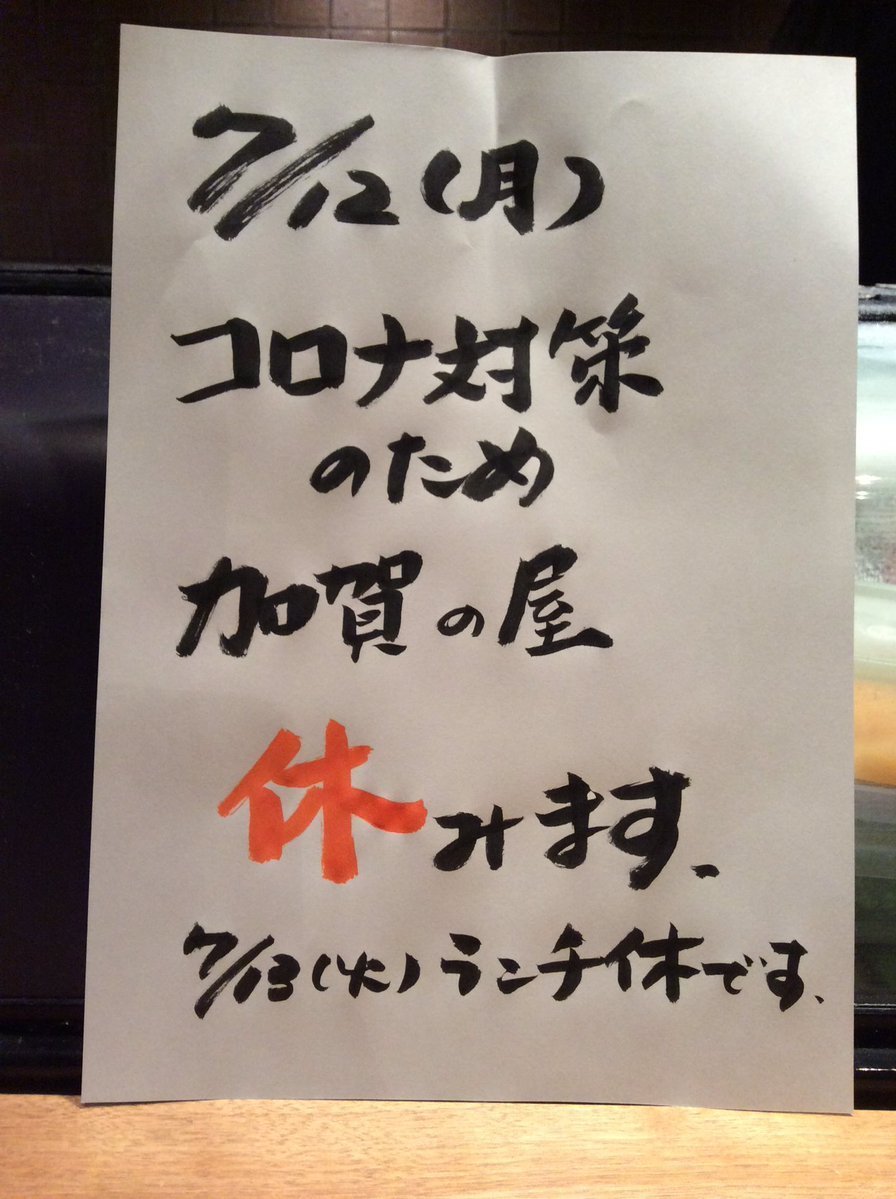 7/12(月)
コロナ対策
のため
加賀の屋
休みます、
7/13(火)ランチ休です、